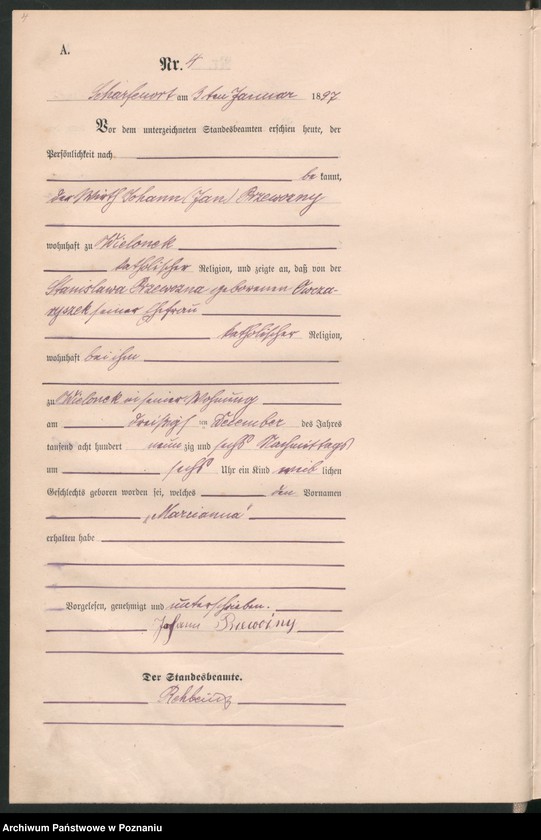 4
A.
Nr. 4
Scharfenort am 3ten Januar 1897
Vor dem unterzeichneten Standesbeamten erschien heute, der
Persönlichkeit nach
be kannt,
der Wirth Johann (Jan) Brzewozny
wohnhaft zu Wielonek
katholischer Religion, und zeigte an, daß von der
Stanislawa Brzewozna geborenen Owcza-
rzyszek seiner Ehefrau
katholischer Religion,
wohnhaft bei ihm
zu Wielonek in seiner Wohnung
am dreißigsten Dezember des Jahres
tausend acht hundert neunzig und sechs Nachmittags
um sechs Uhr ein Kind weib lichen
Geschlechts geboren worden sei, welches den Vornamen
„Marcianna“
erhalten habe
Vorgelesen, genehmigt und unterschrieben.
Johann
Der Standesbeamte.
Archiwum Państwowe w Poznaniu